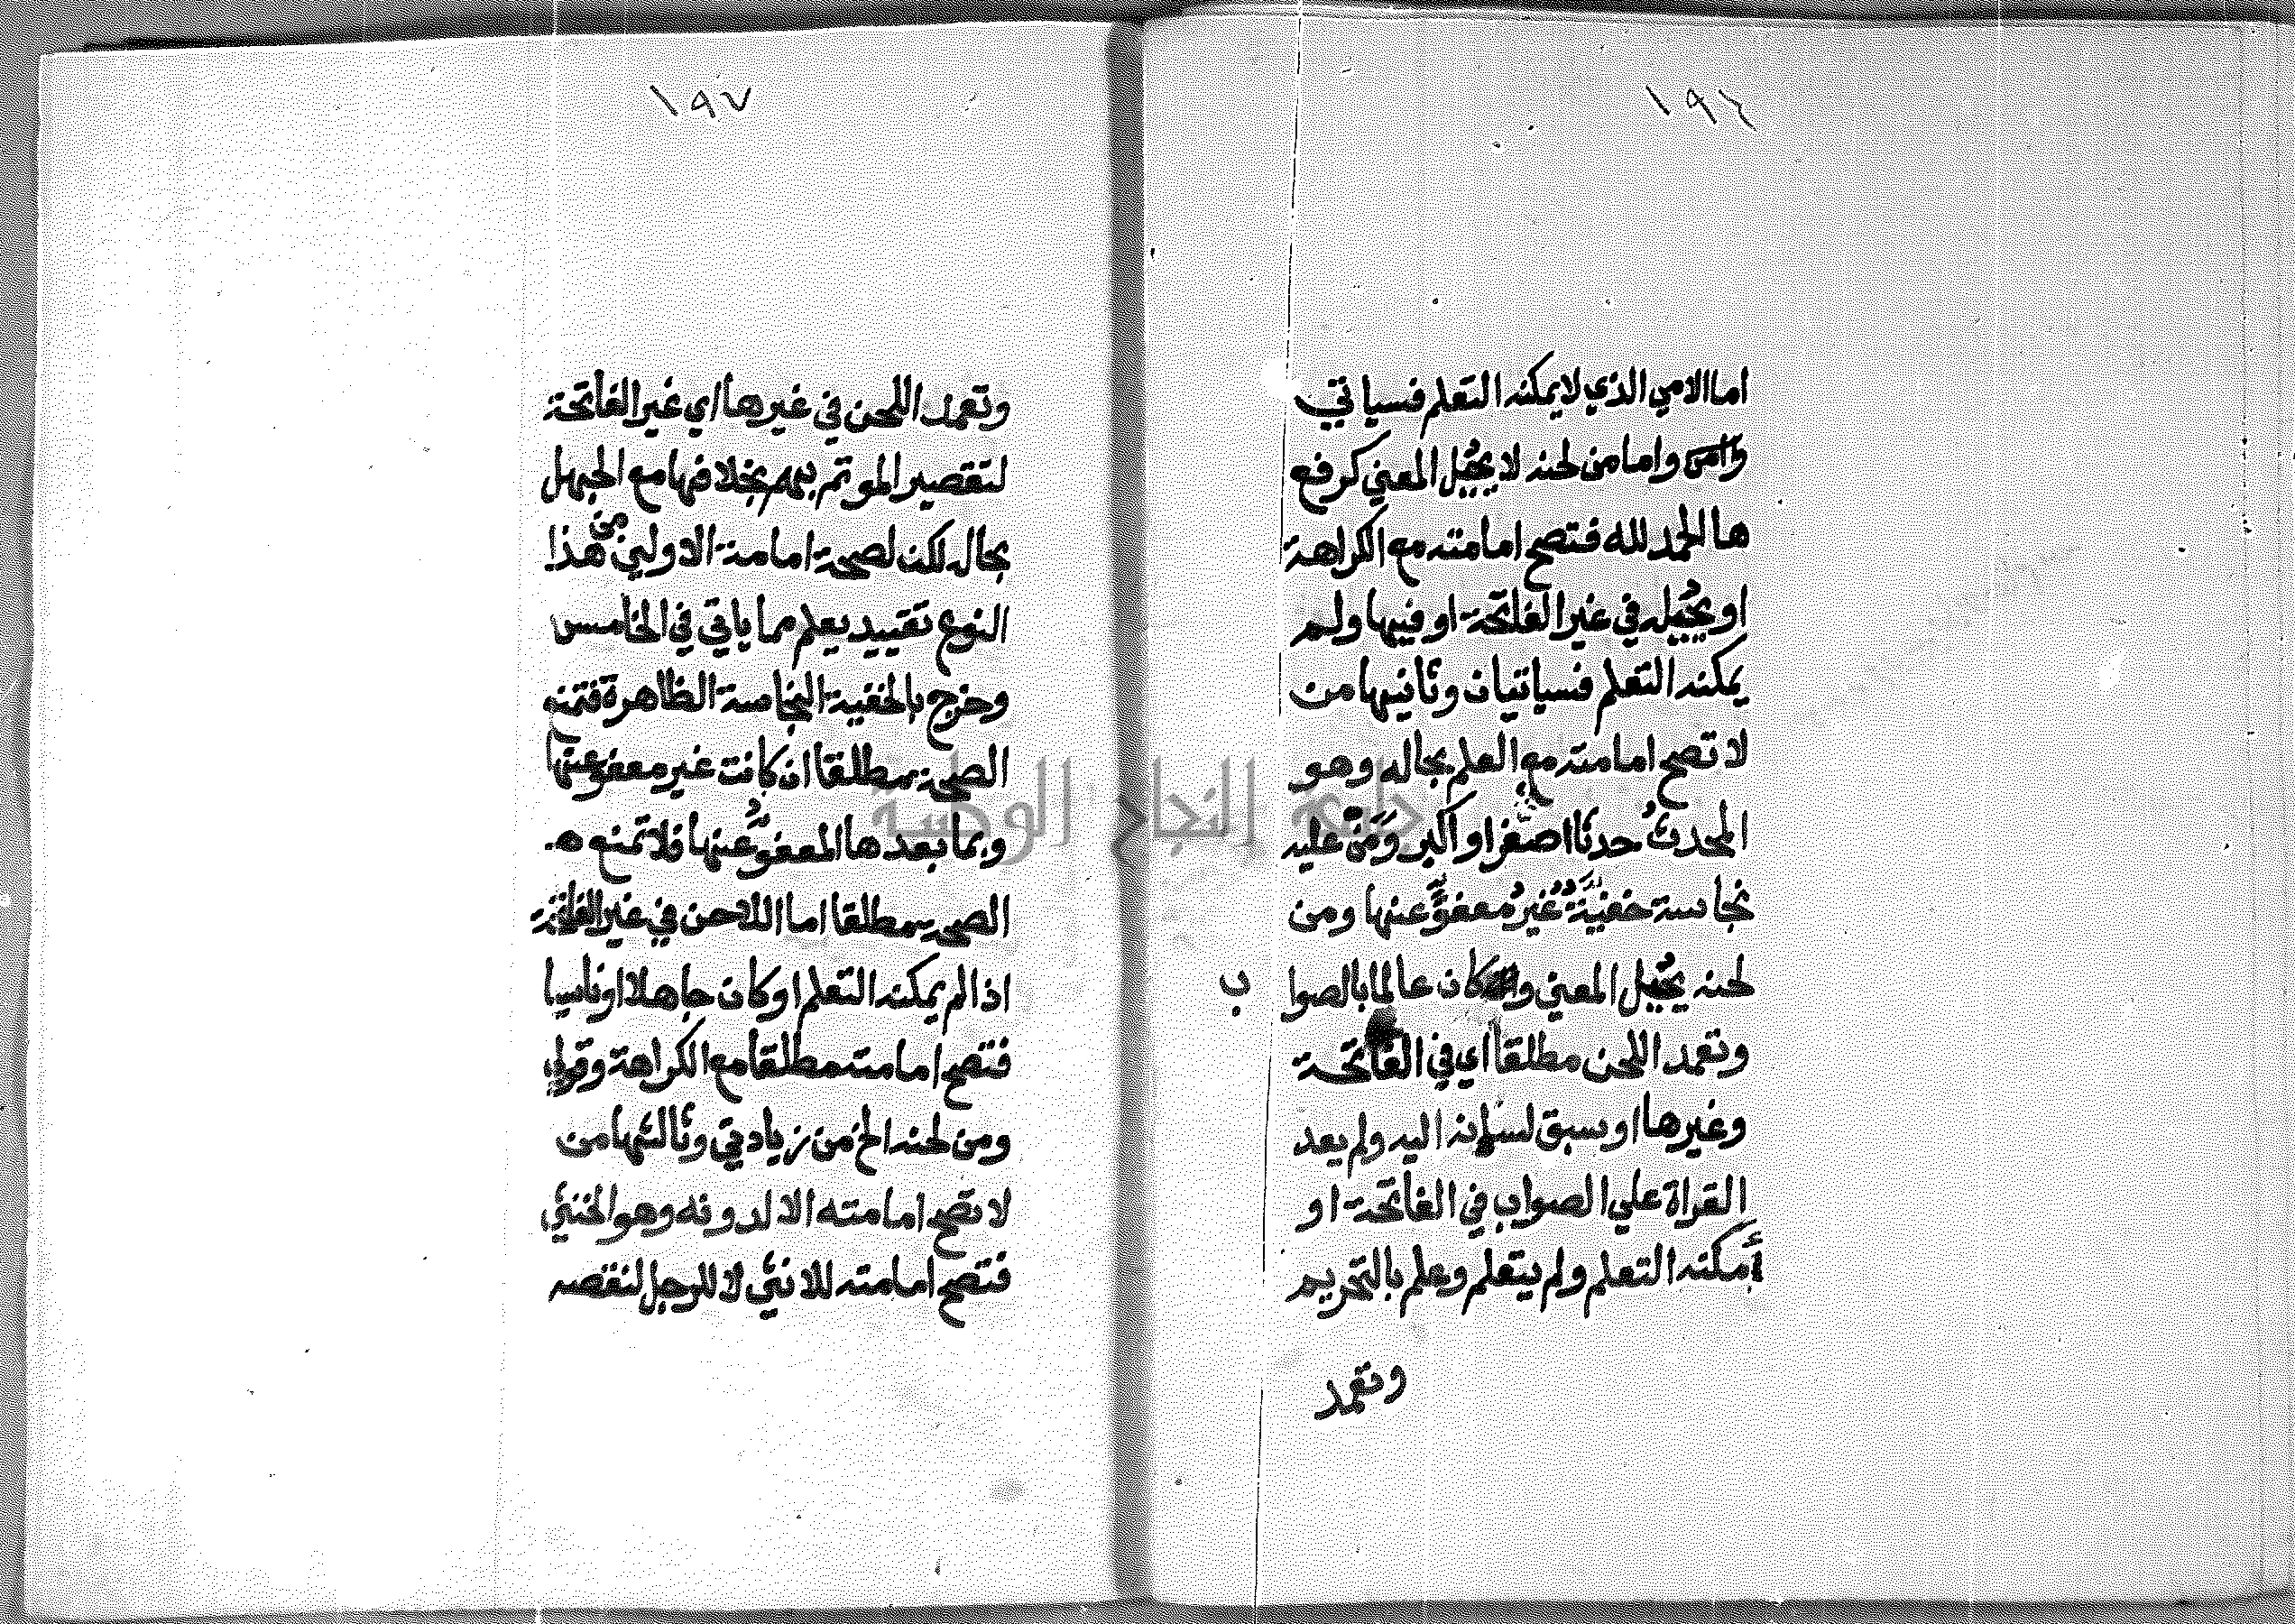 ١٩٦
اما الامي الذي لا يمكنه التعلم فسياتي
وامن واما من لحنه لا يحيل المعني كرفع
ها الحمد لله فتصح امامته مع الكراهة
او يحيله في غير الفاتحة او فيها ولم
يمكنه التعلم فسياتيان وثانيها من
لا تصح امامته مع العلم بحاله وهو
المحدث حدثا اصغر او اكبر ومن عليه
نجاسة خفية غير معفو عنها ومن
لحنه يحيل المعني وكان عالما بالصوا ب
وتعمد اللحن مطلقا اي في الفاتحة
وغيرها او سبق لسانه اليه ولم يعد
القراة علي الصواب في الفاتحة او
أمكنه التعلم ولم يتعلم وعلم بالتحريم
وتعمد
١٩٧
وتعمد اللحن في غيرها اي غير الفاتحة
لتقصير الموتم بهم بخلافها مع الجهل
بحاله لكن لصحة امامة الاولين من هذا
النوع تقييد يعلم مما ياتي في الخامس
وخرج بالخفية النجاسة الظاهرة فتمنع
الصحة مطلقا ان كانت غير معفو عنها
وبما بعدها المعفو عنها فلا تمنع
الصحة مطلقا اما اللاحن في غير الفاتحة
اذا لم يمكنه التعلم او كان جاهلا او ناسيا
فتصح امامته مطلقا مع الكراهة وقولي
ومن لحنه الخ من زيادتي وثالثها من
لا تصح امامته الا لدونه وهو الخنثي
فتصح امامته للانثي لا للرجل لنقصه
جامعة النجاح الوطنية